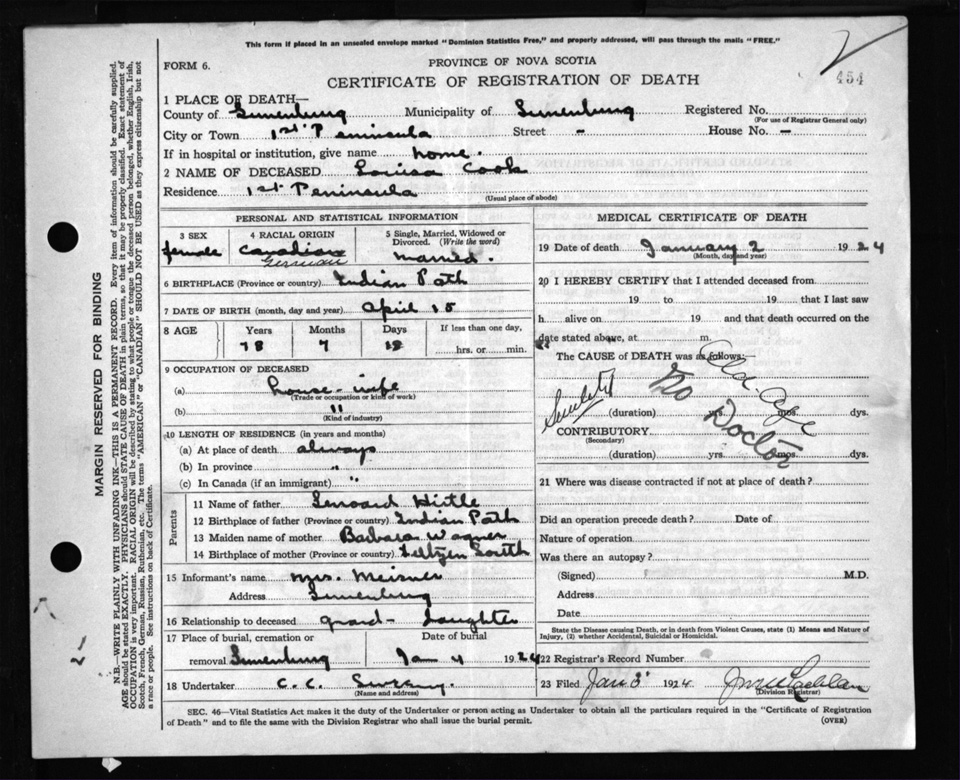 This form if placed in an unsealed envelope marked "Dominion Statistics Free," and properly addressed, will pass through the mails "FREE."
FORM 6.
PROVINCE OF NOVA SCOTIA
454
CERTIFICATE OF REGISTRATION OF DEATH
1 PLACE OF DEATH—
County of Lunenburg Municipality of Lunenburg Registered No.
(For use of Registrar General only)
City or Town 1st Peninsula Street - House No. -
If in hospital or institution, give name home.
2 NAME OF DECEASED Louisa Cook
Residence 1st Peninsula
(Usual place of abode)
PERSONAL AND STATISTICAL INFORMATION
3 SEX 4 RACIAL ORIGIN 5 Single, Married, Widowed or Divorced. (Write the word)
female Canadian married.
German
6 BIRTHPLACE (Province or country) Indian Path
7 DATE OF BIRTH (month, day and year) April 15
8 AGE Years Months Days If less than one day,
78 7 hrs. or min.
9 OCCUPATION OF DECEASED
(a) house-wife
(Trade or occupation or kind of work)
(b) "
(Kind of industry)
10 LENGTH OF RESIDENCE (in years and months)
(a) At place of death always
(b) In province "
(c) In Canada (if an immigrant) "
Parents
11 Name of father Lenoard Hirtle
12 Birthplace of father (Province or country) Indian Path
13 Maiden name of mother Barbara Wagner
14 Birthplace of mother (Province or country) Feltzen South
15 Informant's name Mrs. Meisner
Address Lunenburg
16 Relationship to deceased grand-daughter
17 Place of burial, cremation or Date of burial
removal Lunenburg Jan 4 1924
18 Undertaker C. C. Sweeny.
(Name and address)
MEDICAL CERTIFICATE OF DEATH
19 Date of death January 2 1924
(Month, day and year)
20 I HEREBY CERTIFY that I attended deceased from
19 to 19 that I last saw
h alive on 19 and that death occurred on the
date stated above, at m.
The CAUSE of DEATH was as follows:
Old-Age
No Doctor
Senility
(duration) mos. dys.
CONTRIBUTORY
(Secondary)
(duration) yrs. mos. dys.
21 Where was disease contracted if not at place of death?
Did an operation precede death? Date of
Nature of operation
Was there an autopsy?
(Signed) M.D.
Address
Date
State the Disease causing Death, or in death from Violent Causes, state (1) Means and Nature of Injury, (2) whether Accidental, Suicidal or Homicidal.
22 Registrar's Record Number
23 Filed Jan 3 1924
(Division Registrar)
SEC. 46—Vital Statistics Act makes it the duty of the Undertaker or person acting as Undertaker to obtain all the particulars required in the "Certificate of Registration
of Death" and to file the same with the Division Registrar who shall issue the burial permit.
(OVER)
MARGIN RESERVED FOR BINDING
N.B.—WRITE PLAINLY WITH UNFADING INK—THIS IS A PERMANENT RECORD. Every item of information should be carefully supplied.
AGE should be stated EXACTLY. PHYSICIANS should STATE CAUSE OF DEATH in plain terms, so that it may be properly classified. Exact statement of
OCCUPATION is very important. RACIAL ORIGIN will be described by stating to what people or tongue the deceased person belonged, whether English, Irish,
Scotch, French, German, Russian, Ruthenian, etc. The terms "AMERICAN" or "CANADIAN" SHOULD NOT BE USED as they express citizenship but not
a race or people. See instructions on back of Certificate.